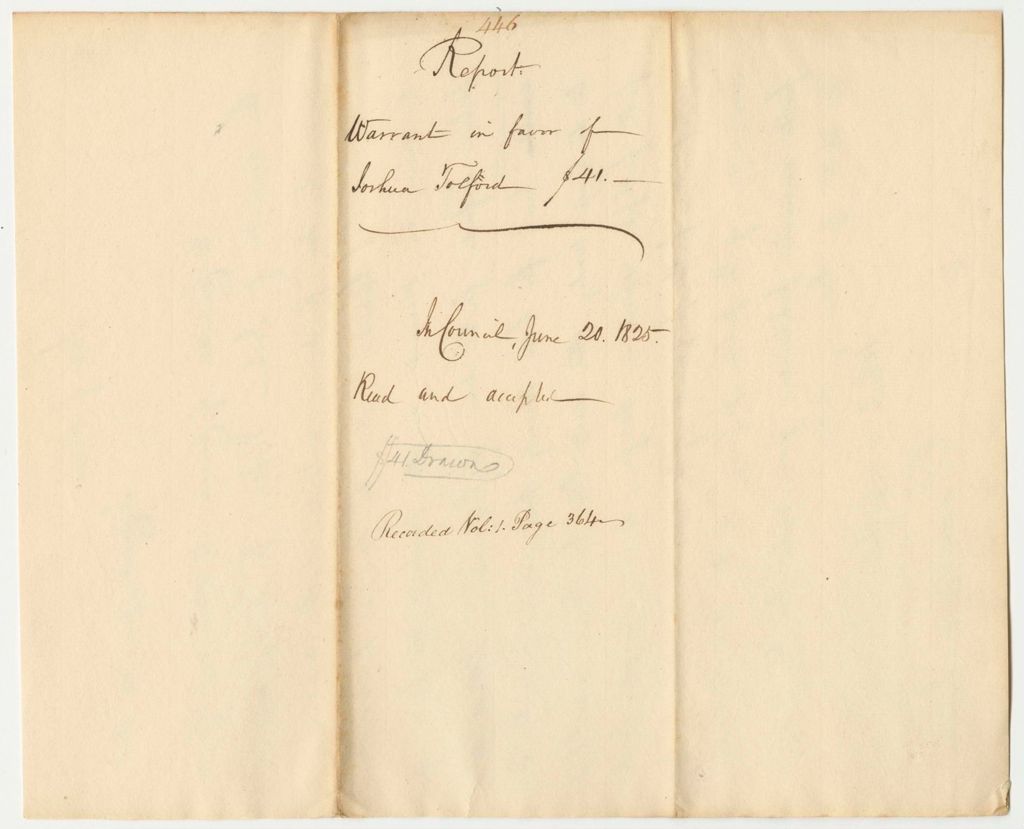 446
Report.
Warrant in favor of
Joshua Tolford $41.—
In Council, June 20. 1825.
Read and accepted
$41. Drawn
Recorded Vol: 1. Page 364